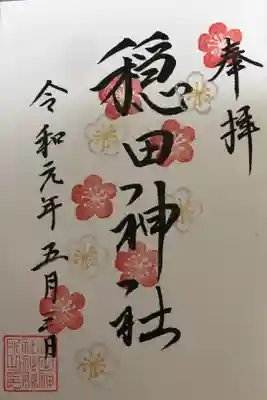 奉拝
穏田神社
令和元年五月三日